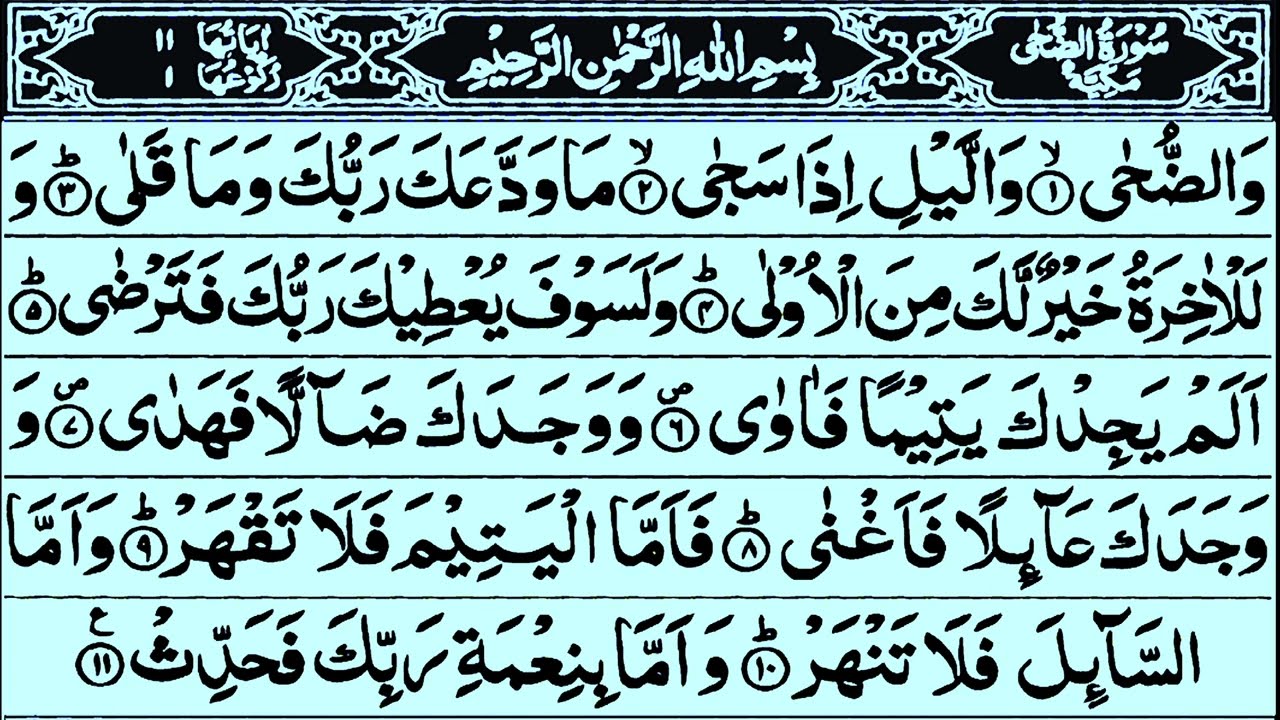 سُوْرَةُ الضُّحٰى مَكِّيَّةٌ
بِسْمِ اللهِ الرَّحْمٰنِ الرَّحِيْمِ
اٰيَاتُهَا ١١
رُكُوْعُهَا ١
وَالضُّحٰى ۙ﴿۱﴾ وَالَّيْلِ اِذَا سَجٰى ۙ﴿۲﴾ مَا وَدَّعَكَ رَبُّكَ وَمَا قَلٰى ؕ﴿۳﴾ وَ
لَلْاٰخِرَةُ خَيْرٌ لَّكَ مِنَ الْاُوْلٰى ؕ﴿۴﴾ وَلَسَوْفَ يُعْطِيْكَ رَبُّكَ فَتَرْضٰى ؕ﴿۵﴾
اَلَمْ يَجِدْكَ يَتِيْمًا فَاٰوٰى ۪﴿۶﴾ وَوَجَدَكَ ضَآلًّا فَهَدٰى ۪﴿۷﴾ وَ
وَجَدَكَ عَآئِلًا فَاَغْنٰى ؕ﴿۸﴾ فَاَمَّا الْيَتِيْمَ فَلَا تَقْهَرْ ؕ﴿۹﴾ وَاَمَّا
السَّآئِلَ فَلَا تَنْهَرْ ؕ﴿۱۰﴾ وَاَمَّا بِنِعْمَةِ رَبِّكَ فَحَدِّثْ ﴿۱۱﴾ ع